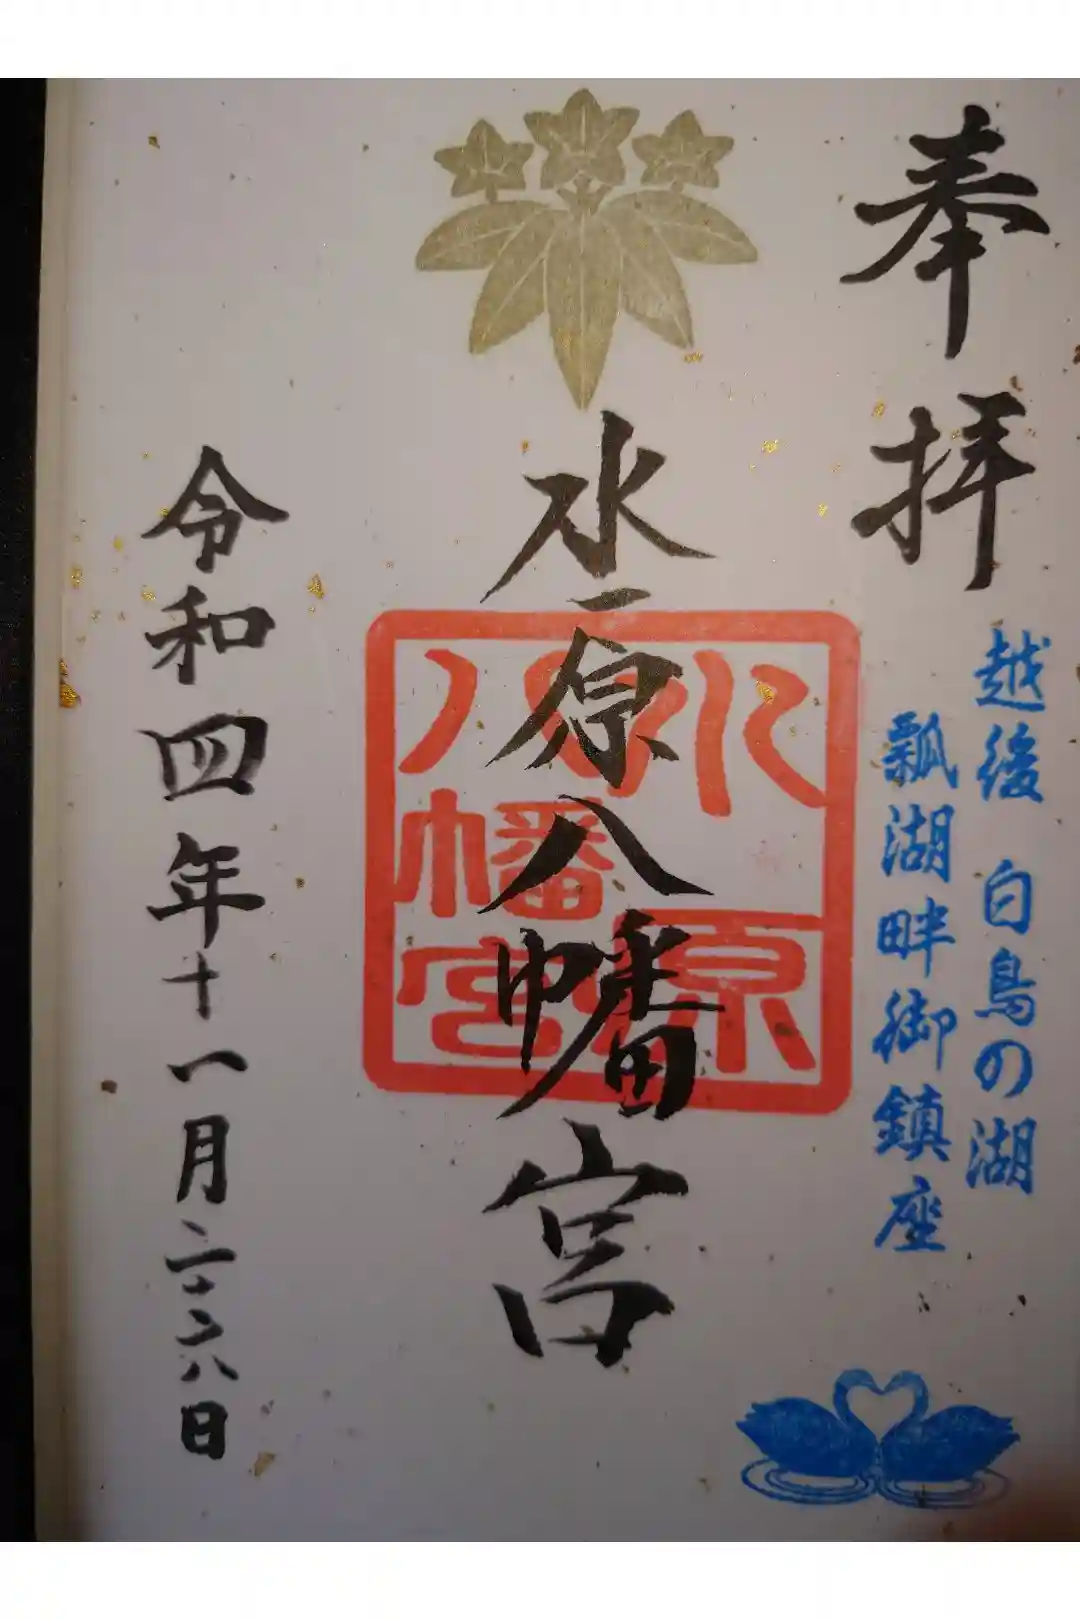 奉拝
越後 白鳥の湖
瓢湖畔御鎮座
水原八幡宮
水原
八幡宮
令和四年十一月二十六日